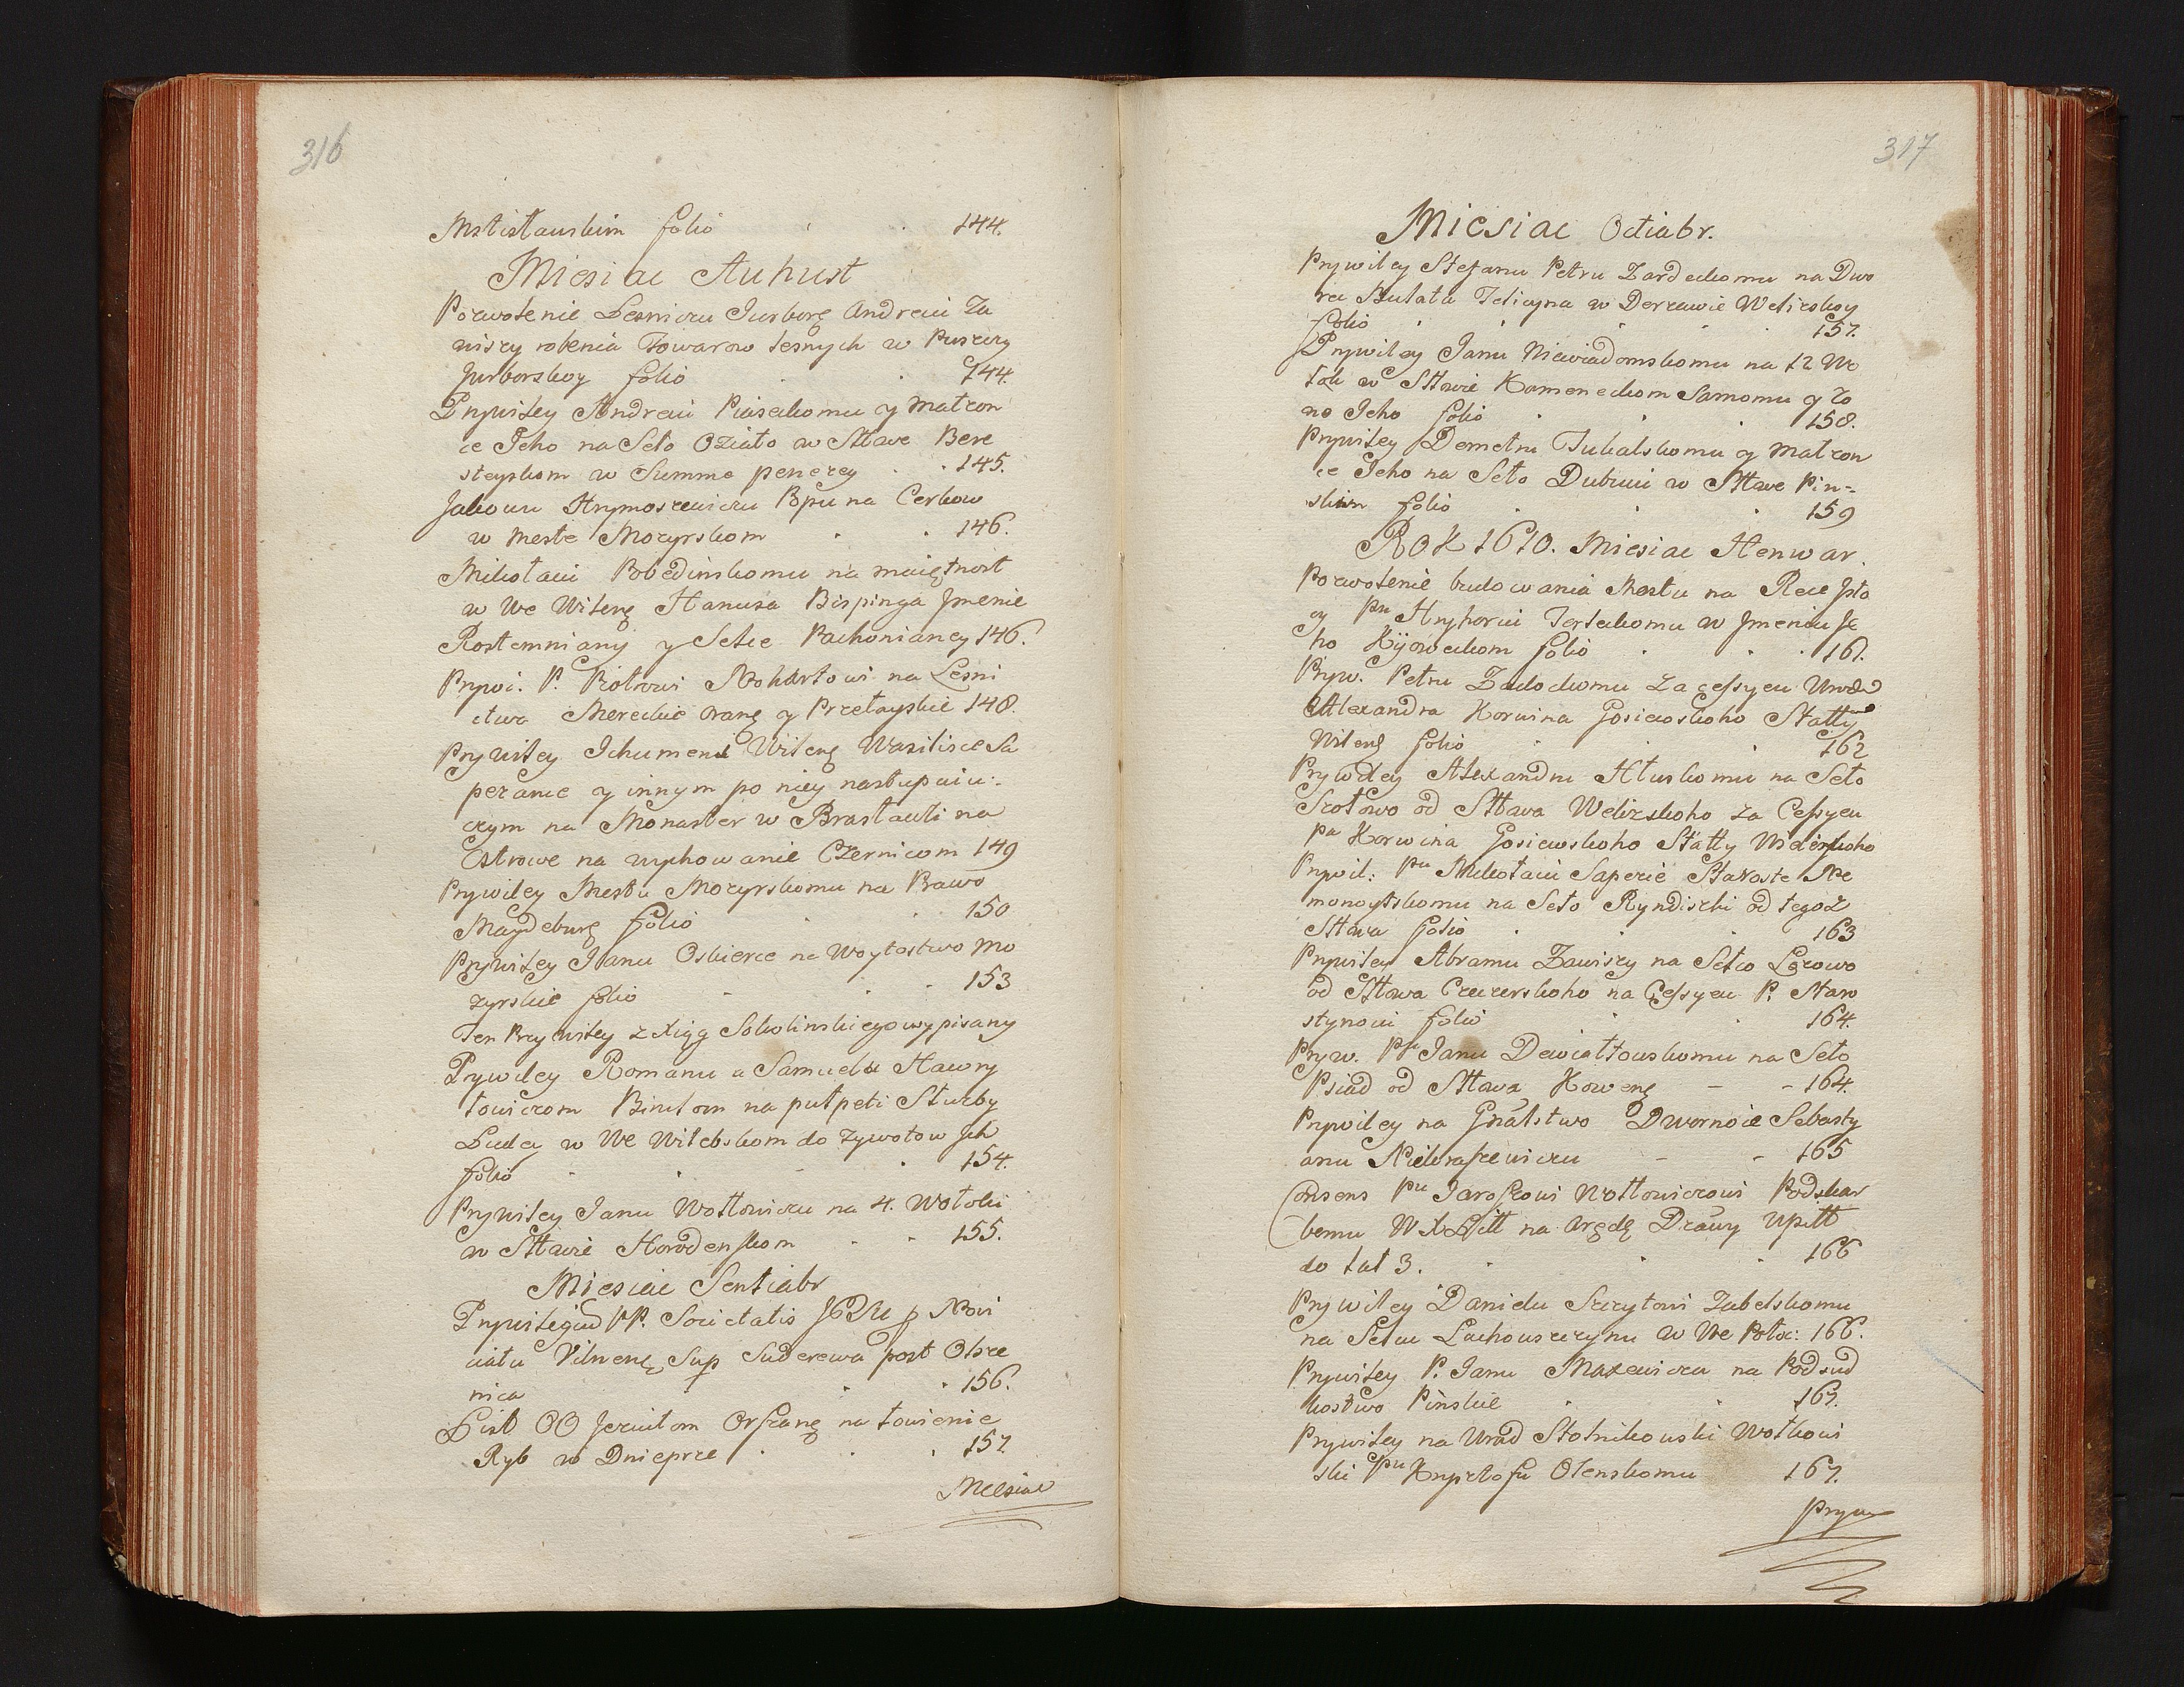 316
Mstisławskim folio . . 144.
Miesiac Auhust
Pozwolenie Lesniczu Jurborg Andreiu Za
wiszy robenia Towarow lesnych w Puszczy
Jurborskoy folio . . 144.
Prywiley Andreiu Piaseckomu y Małżon
ce Jeho na Seło Oziato w Sttwe Bere
steyskom w Summe penezey . . 145.
Jakowu Hrymoszewiczu Popu na Cerkow
w Meste Mozyrskom . . 146.
Mikołaiu Pobedinskomu na maiętnost
w We Wileng Hanusa Bispinga Jmenie
Rostemniany y Selce Pachoniancy 146.
Prywi. P. Piotrowi Nohartowi na Lesni
ctwo Mereckie Orang y Przełayskie 148.
Prywiley Ichumeni Wileng Wasilisce Sa
pezance y innym po niey nastupuiu:
czym na Monaster w Brasławli na
Ostrowe na wychowanie Czernicom 149
Prywiley Mestu Mozyrskomu na Prawo
Maydeburg folio . . 150
Prywiley Janu Oskierce na Woytostwo Mo
zyrskie folio - . . 153
Ten Przywiley z Xiąg Sokolinskiego wypisany
Prywiley Romanu a Samuelu Hawry
łowiczom Binulom na pułpeti Służby
Ludey w We Witebskom do zywotow Jch
folio . . - . 154.
Prywiley Janu Wołłowiczu na 4. Wołoki
w Sttwie Horodenskom . . 155.
Miesiac Sentiabr
Prywilegiu PP. Societatis p Novi
ciatu Vilneng Sup Suderewa post Olsze
nica . . 156.
List OO Jezuitom Orszang na łowienie
Ryb w Dnieprze . . . 157.
Miesiac
317
Miesiac Octiabr.
Prywiley Stefanu Petru Zardeckomu na Dwo
rec Bulata Telicyna w Derzawie Weliżskoy
folio . . . . 157.
Prywiley Janu Niewiadomskomu na 12 Wo
łok w Sttwie Kameneckom Samomu y Żo
ne Jeho folio . . 158.
Prywiley Demetru Tukalskomu y Małżon
ce Jeho na Seło Dubiui w Sttwe Pin-
skim folio . . . 159
ROK 1610. Miesiac Henwar.
Pozwolenie budowania Mostu na Rece Jsło
czy Pu Hryhoriu Terleckomu w Jmeniu Je
ho Kijoweckom folio . . . 161.
Pryw. Petru Zadockomu za cessyeu Urod
Alexandra Korwina Gosiewskoho Statty
Wileng folio . . . 162
Prywiley Alexandru Hłuskomu na Seło
Szołowo od Sttwa Weliżskoho za Cessyeu
Pa Korwina Gosiewskoho Statty Weliżskoho
Prywil: Pu Mikołaiu Sapezie Staroste Ne
monoytskomu na Seło Ryndiszki od tegoż
Sttwa folio . . . 163
Prywiley Abramu Zawiszy na Selco Lgowo
od Sttwa Czeczerskoho na Cessyeu P. Haro
stynowi folio . . 164.
Pryw. Pu Janu Dewiałtowskomu na Seło
Psiad od Sttwa Koweng - - 164.
Prywiley na Gralstwo Dwornoie Sebasty
anu Niekraszewiczu - - 165
Consens Pu Jaroszowi Wołłowiczowi Podskar
bemu W X Litt na Arędę Drawy Upitt
do lat 3. . . . 166
Prywiley Danielu Szczytowi Zabelskomu
na Selce Lachowszczynu w We Połoc: 166.
Prywiley P. Janu Maxewiczu na Podsud
kostwo Pinskie . . 167.
Prywiley na Urad Stolnikowski Wołkowi
ski Pu Krysztofu Olenskomu 167.
Pryw